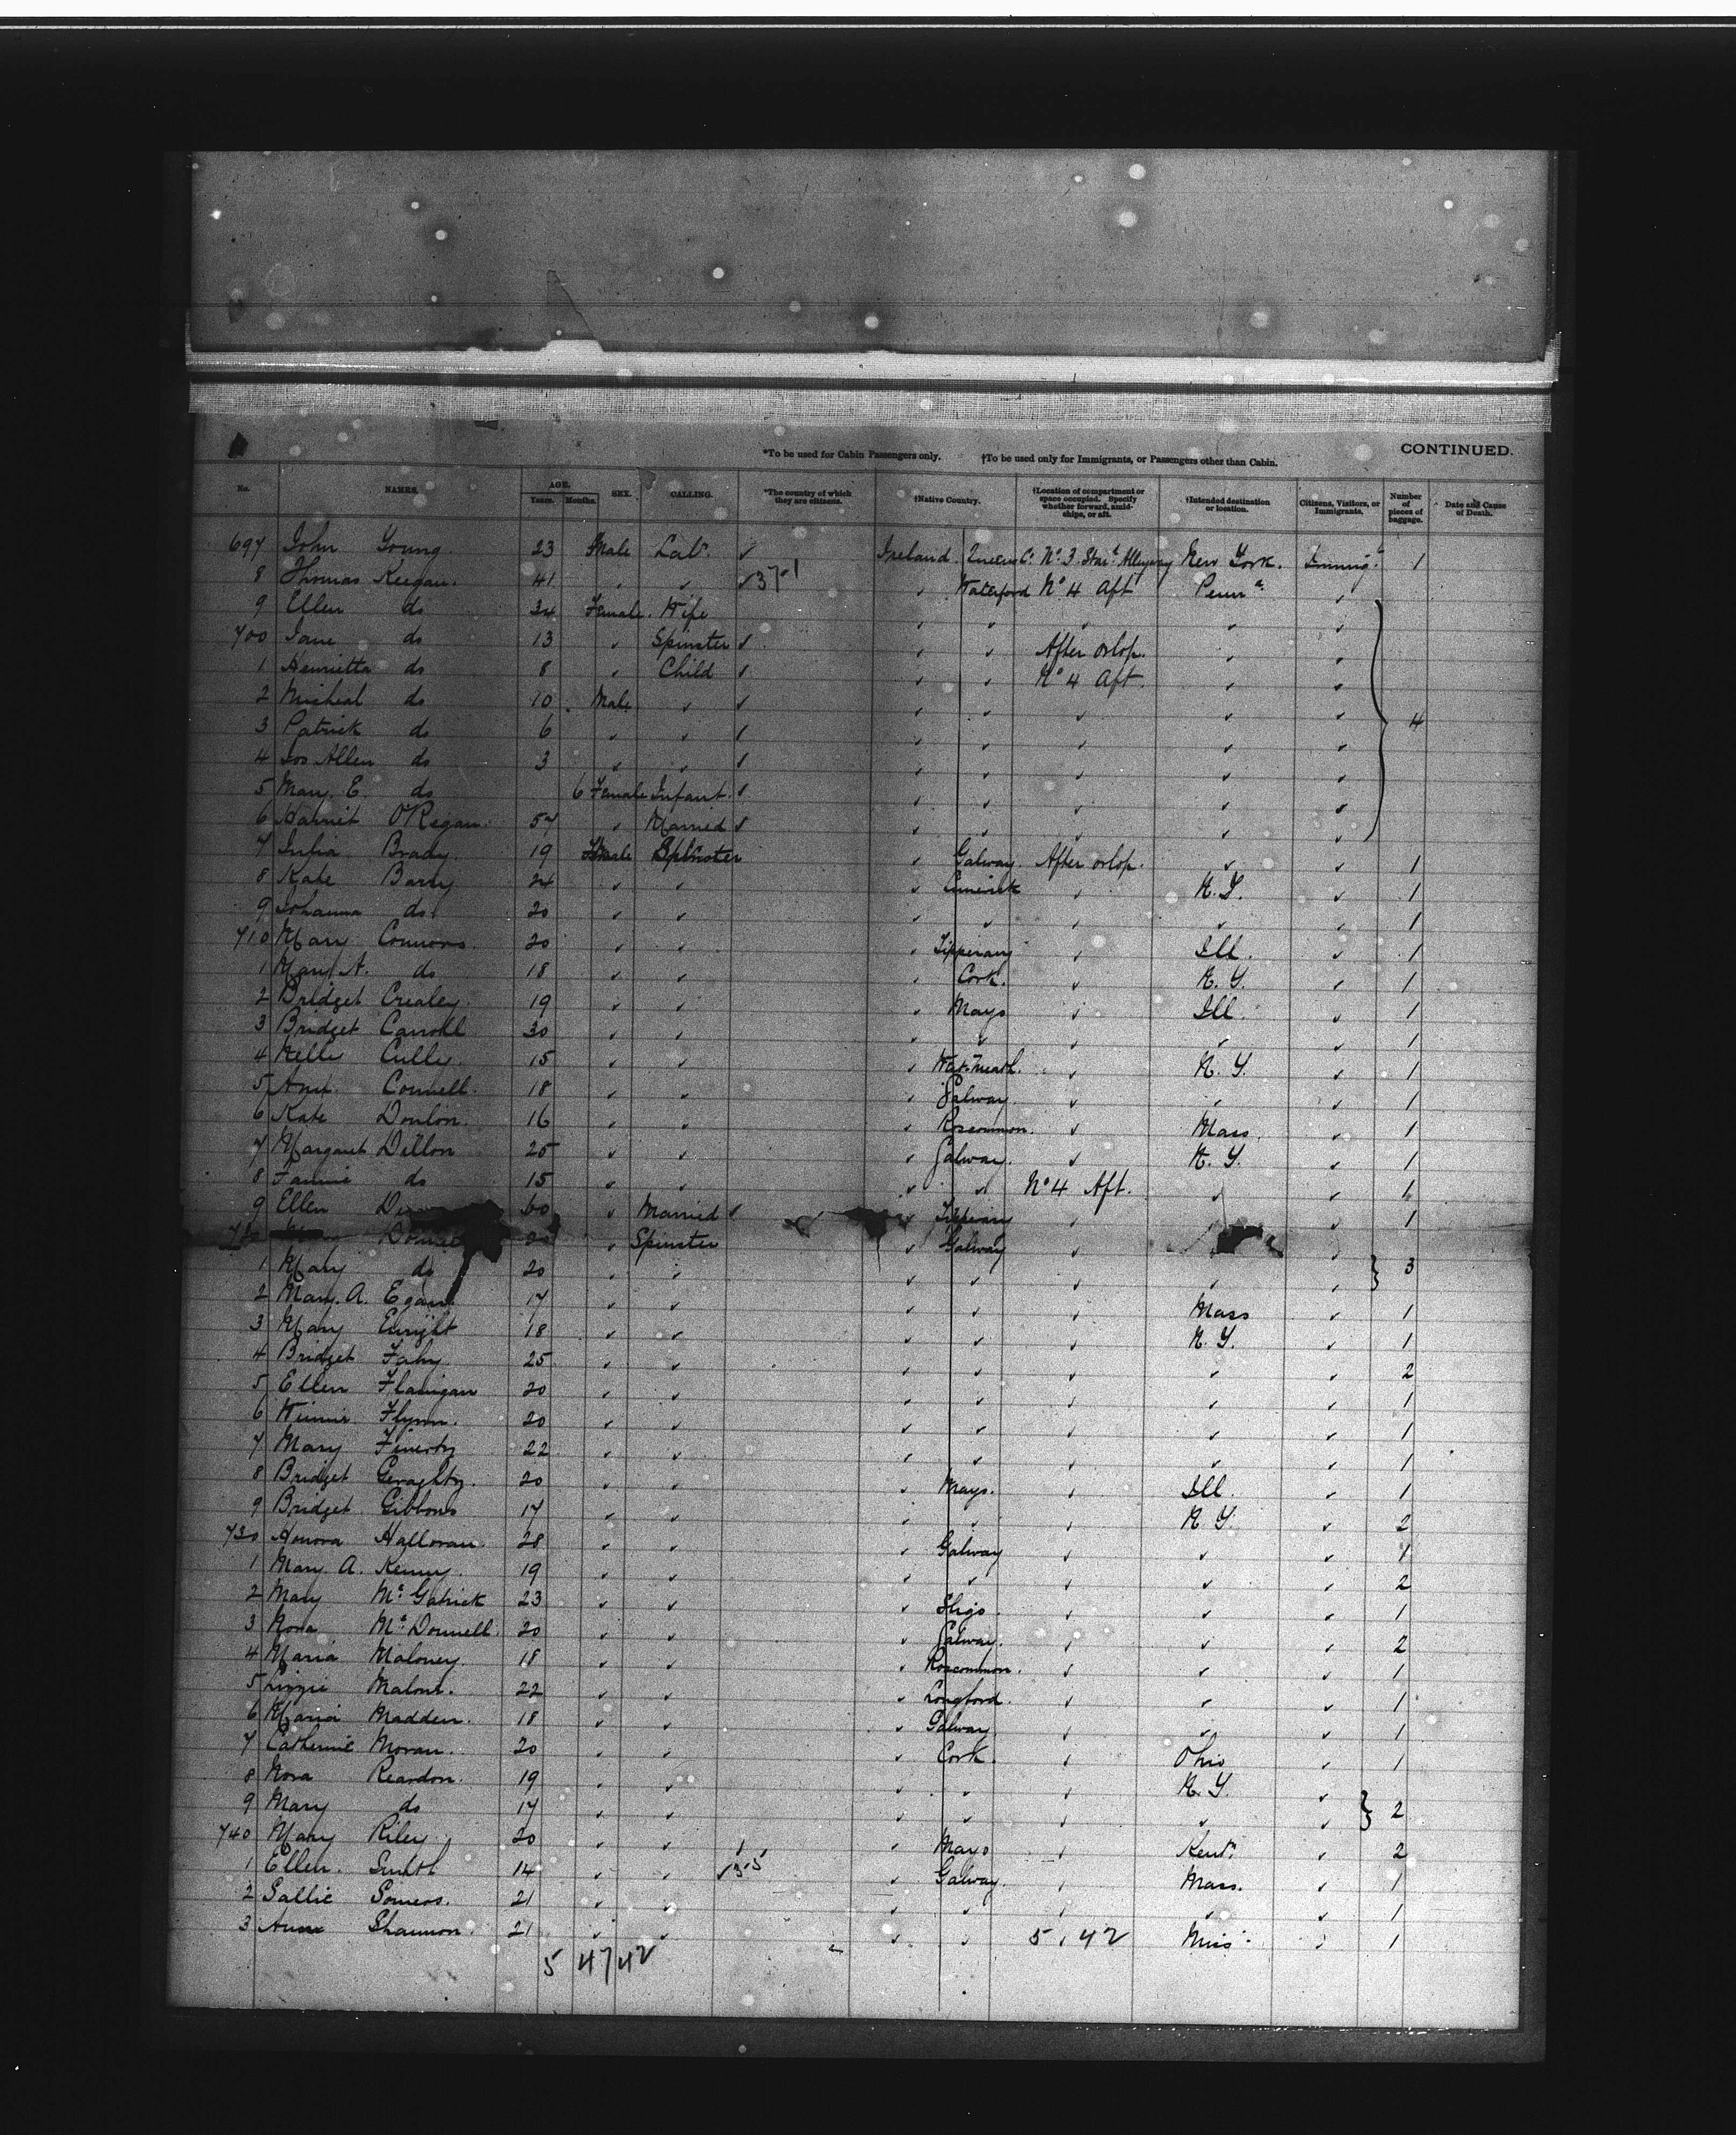 CONTINUED.
*To be used for Cabin Passengers only. †To be used only for Immigrants, or Passengers other than Cabin.
No. NAMES. AGE. Years. Months. SEX. CALLING. *The country of which they are citizens. †Native Country. †Location of compartment or space occupied. Specify whether forward, amidships, or aft. †Intended destination or location. Citizens, Visitors, or Immigrants. Number of pieces of baggage. Date and Cause of Death.
697 John Young 23 Male Labr ✓ Ireland Queens Co. No. 3 Alleyway New York. Immigt 1
8 Thomas Keegan. 41 " " ✓ ✓ Waterford No 4 Aft Penna ✓
9 Ellen do 34 Female Wife ✓ ✓ ✓ ✓ ✓
700 Jane do 13 ✓ Spinster ✓ ✓ ✓ After orlop. ✓ ✓
1 Henrietta do 8 ✓ Child ✓ ✓ ✓ No 4 Aft. ✓ ✓
2 Micheal do 10 Male ✓ ✓ ✓ ✓ ✓ ✓ ✓ 4
3 Patrick do 6 ✓ ✓ ✓ ✓ ✓ ✓ ✓ ✓
4 Jos Allen do 3 ✓ ✓ ✓ ✓ ✓ ✓ ✓ ✓
5 Mary. E. do 6 Female Infant. ✓ ✓ ✓ ✓ ✓ ✓
6 Harriet O'Regan. 57 ✓ Married ✓ ✓ ✓ ✓ ✓ ✓
7 Julia Brady. 19 Spinster ✓ Galway. After orlop. ✓ ✓ 1
8 Kate Barry 24 ✓ ✓ ✓ Limerick ✓ N.Y. ✓ 1
9 Johanna do 20 ✓ ✓ ✓ ✓ ✓ ✓ ✓ 1
710 Mary Connors. 20 ✓ ✓ ✓ Tipperary ✓ Ill. ✓ 1
1 Mary A. do 18 ✓ ✓ ✓ Cork. ✓ N.Y. ✓ 1
2 Bridget Crealey. 19 ✓ ✓ ✓ Mayo ✓ Ill. ✓ 1
3 Bridget Carroll 30 ✓ ✓ ✓ ✓ ✓ ✓ ✓ 1
4 15 ✓ ✓ ✓ Westmeath. ✓ N.Y. ✓ 1
5 Connell. 18 ✓ ✓ ✓ Galway ✓ ✓ ✓ 1
6 Kate Donlon. 16 ✓ ✓ ✓ Roscommon. ✓ Mass. ✓ 1
7 Margaret Dillon 25 ✓ ✓ ✓ Galway. ✓ N.Y. ✓ 1
8 Fannie do 15 ✓ ✓ ✓ ✓ No 4 Aft. ✓ ✓ 1
9 Ellen 60 ✓ Married ✓ ✓ Tipperary ✓ ✓ 1
✓ Spinster ✓ Galway ✓ ✓
1 Mary do 20 ✓ ✓ ✓ ✓ ✓ ✓ ✓ 3
2 Mary. A. Egan. 17 ✓ ✓ ✓ ✓ ✓ Mass ✓ 1
3 Mary Enright 18 ✓ ✓ ✓ ✓ ✓ N.Y. ✓ 1
4 Bridget Fahy. 25 ✓ ✓ ✓ ✓ ✓ ✓ ✓ 2
5 Ellen Flanigan 20 ✓ ✓ ✓ ✓ ✓ ✓ ✓ 1
6 Winnie Flynn. 20 ✓ ✓ ✓ ✓ ✓ ✓ ✓ 1
7 Mary Finerty 22 ✓ ✓ ✓ ✓ ✓ ✓ ✓ 1
8 Bridget Geraghty. 20 ✓ ✓ ✓ Mayo. ✓ Ill. ✓ 1
9 Bridget Gibbons 17 ✓ ✓ ✓ ✓ ✓ N.Y. ✓ 2
730 Honora Halloran. 28 ✓ ✓ ✓ Galway ✓ ✓ ✓ 1
1 Mary A. Kenny. 19 ✓ ✓ ✓ ✓ ✓ ✓ ✓ 2
2 Mary 23 ✓ ✓ ✓ Sligo. ✓ ✓ ✓ 1
3 Nora McDonnell. 20 ✓ ✓ ✓ Galway. ✓ ✓ ✓ 2
4 Maria Maloney. 18 ✓ ✓ ✓ Roscommon. ✓ ✓ ✓ 1
5 Lizzie Malone. 22 ✓ ✓ ✓ Longford. ✓ ✓ ✓ 1
6 Maria Madden. 18 ✓ ✓ ✓ Galway. ✓ ✓ ✓ 1
7 Catherine Moran. 20 ✓ ✓ ✓ Cork. ✓ Ohio ✓ 1
8 Nora Reardon. 19 ✓ ✓ ✓ ✓ ✓ N.Y. ✓
9 Mary do 17 ✓ ✓ ✓ ✓ ✓ ✓ ✓ 2
740 Mary Riley. 20 ✓ ✓ ✓ Mayo ✓ Kent. ✓ 2
1 Ellen. Smith 14 ✓ ✓ ✓ Galway. ✓ Mass. ✓ 1
2 Sallie Somers. 21 ✓ ✓ ✓ ✓ ✓ ✓ 1
3 Shannon. 21 ✓ ✓ ✓ ✓ 5, 42 ✓ 1
5 47/42